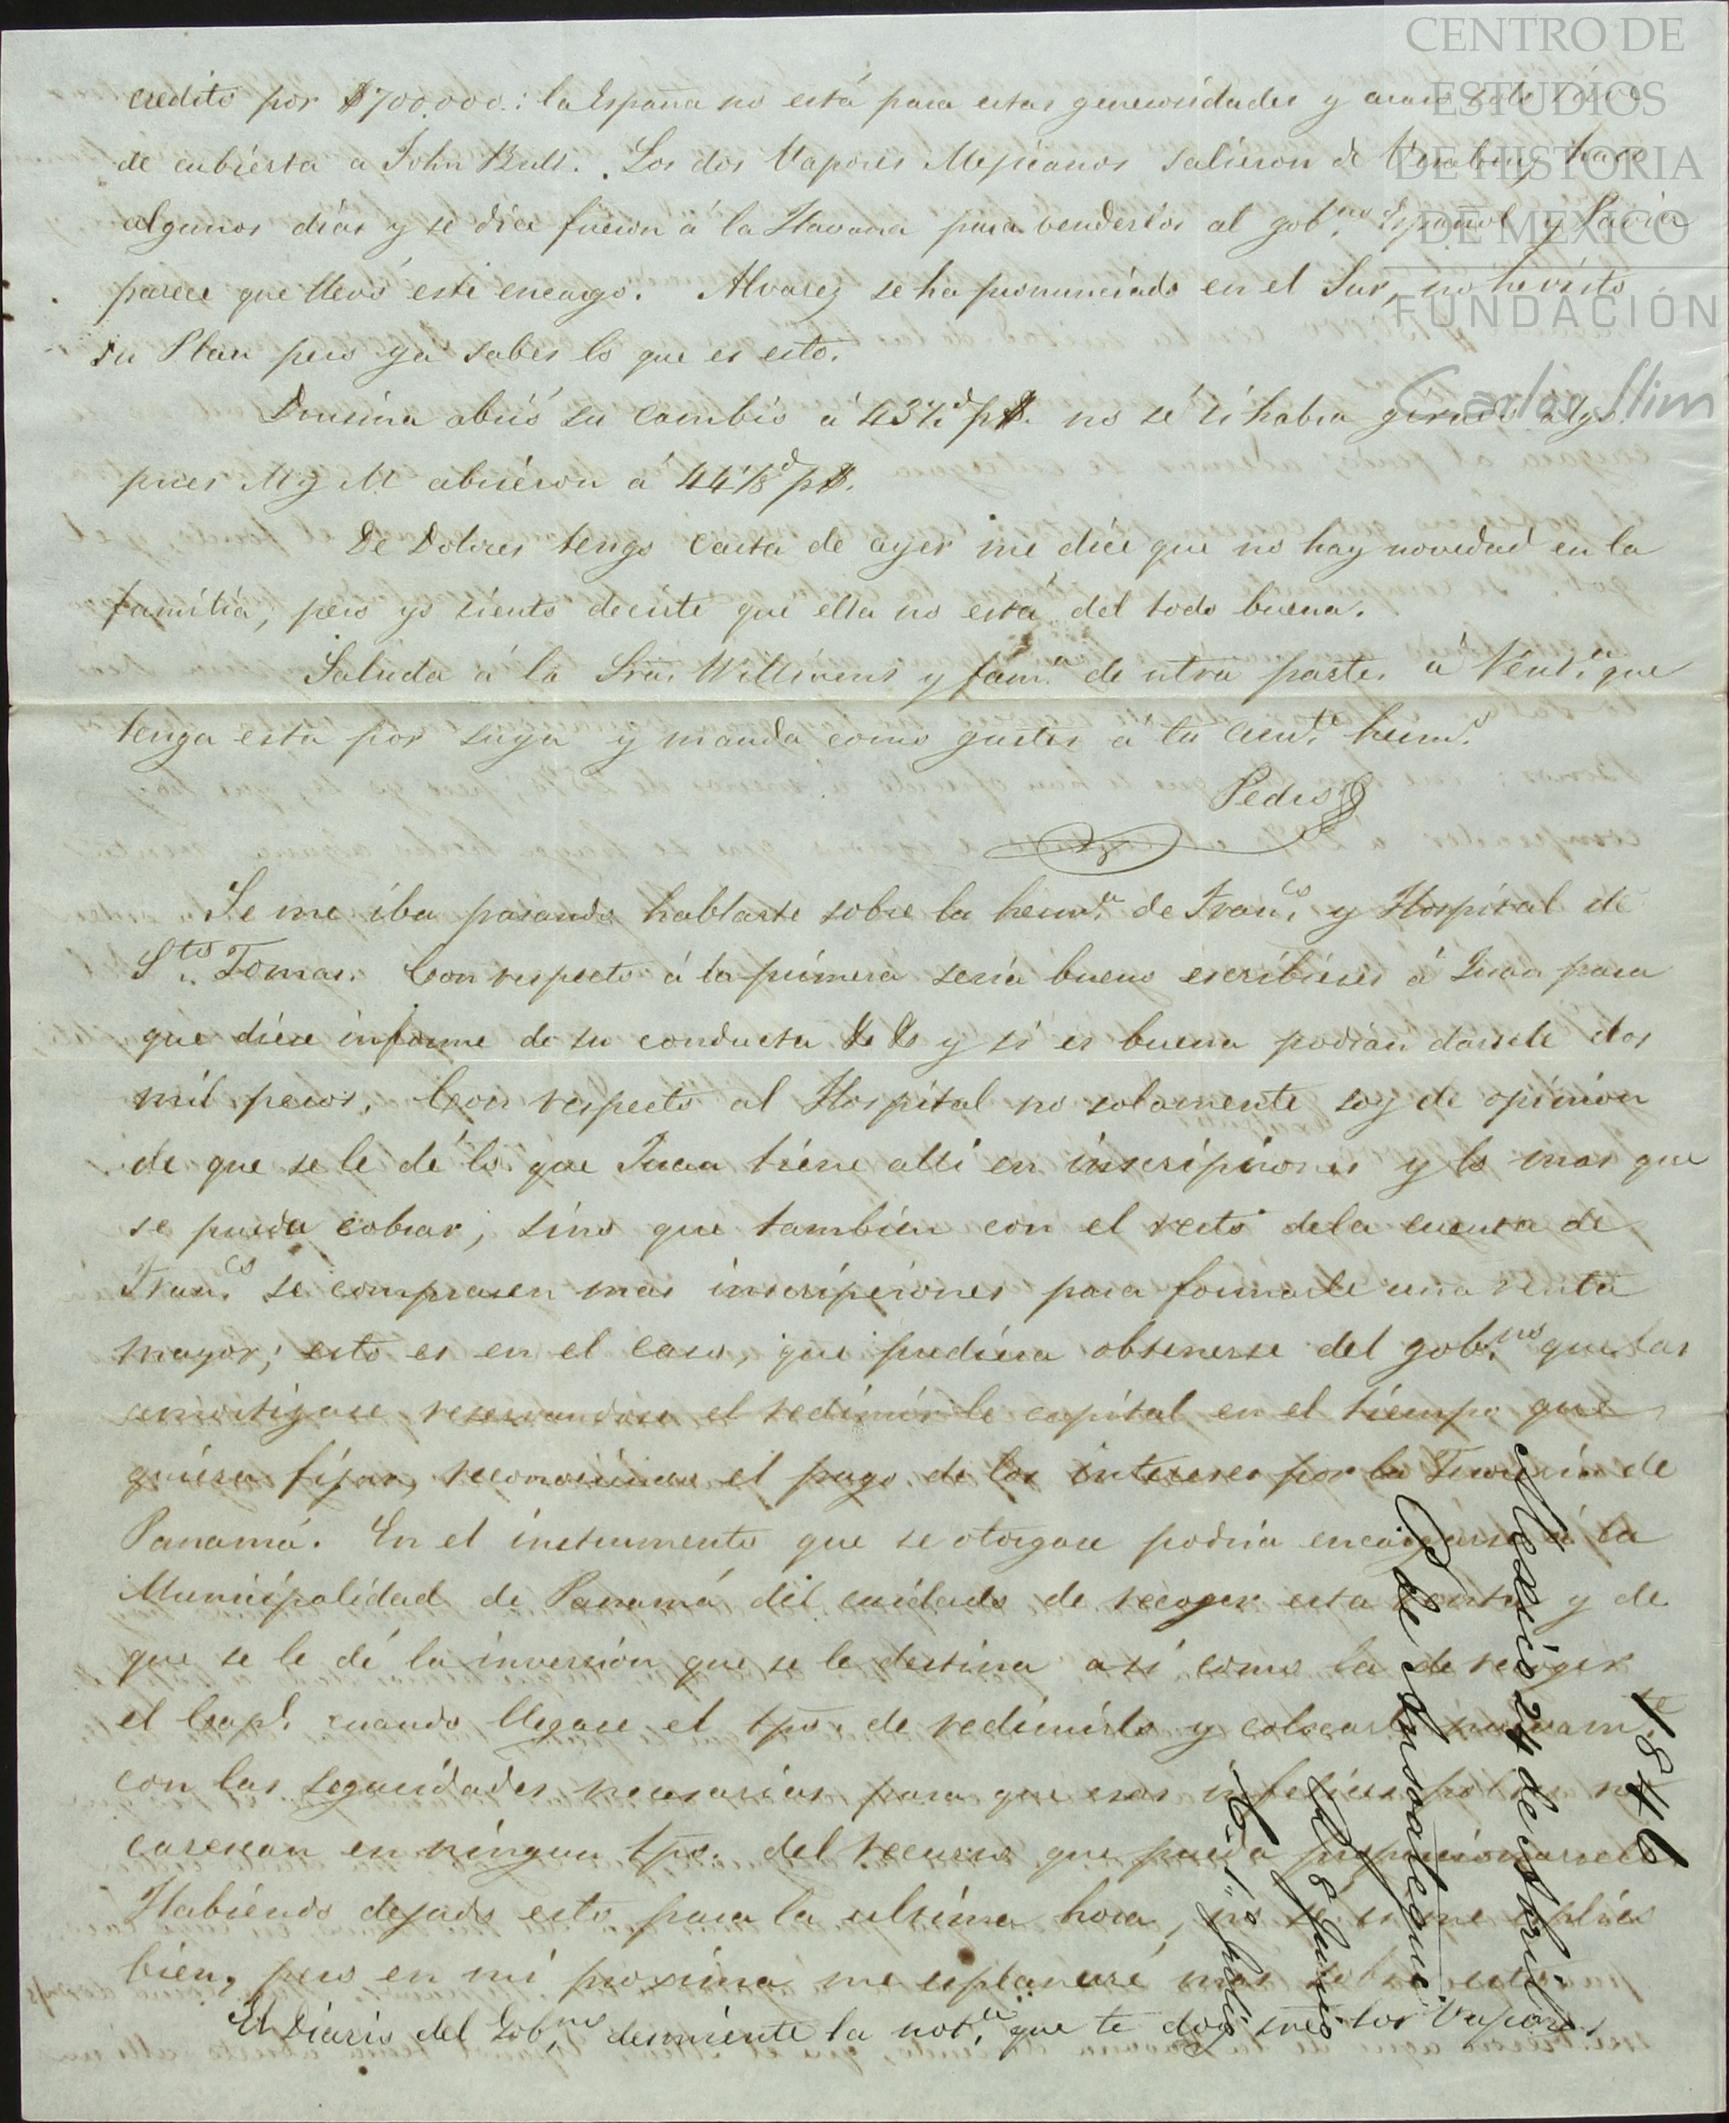 credito por $700.000.: la España no está para estas generosidades y acaso solo sirve
de cubierta a John Bull. Los dos Vapores Mejicanos salieron de Veracruz hace
algunos dias y se dice fueron á la Havana para venderlos al gob.no Español y Pavia
parece que llevó este encargo. Alvarez se ha pronunciado en el Sur, no he visto
su Plan pero ya sabes lo que es esto.
Drusina abrió su cambio á 43½d p$. no sé si habra girado algo
pues M y M abrieron á 44⅛d p$.
De Dolores tengo carta de ayer me dice que no hay novedad en la
familia, pero yo siento decirte que ella no está del todo buena.
Saluda á la Sra. Williams y fam.a de ntra parte, a Vent.a que
tenga esta por suya y manda como gustes á tu herm.o
Pedro
Se me iba pasando hablarte sobre la herm.a de Fran.co y Hospital de
Sto. Tomas. Con respecto á la primera seria bueno escribieses á Juan para
que diese informe de su conducta & & y si es buena podrian darsele dos
mil pesos. Con respecto al Hospital no solamente soy de opinion
de que se le dé lo que Juan tiene alli en inscripciones y lo mas que
se pueda cobrar; sino que tambien con el resto dela cuenta de
Fran.co se comprasen mas inscripciones para formarle una renta
mayor; esto es en el caso, que pudiera obtenerse del gob.no que las
amortigase reservandose el redimirle capital en el tiempo que
quiera fijar, reconociendo el pago de los intereses por la Tesoreria de
Panamá. En el instrumento que se otorgase podria encargarse á la
Municipalidad de Panamá del cuidado de recoger esta renta y de
que se le dé la inversion que se le destina asi como la de recoger
el Cap.l cuando llegase el tpo. de redimirlo y colocarlo nuevam.te
con las seguridades necesarias para que esos infelices pobres no
caresean en ningun tpo. del recurso que pueda proporcionarseles.
Habiendo dejado esto para la ultima hora, no sé si me esplico
bien, pero en mi proxima me esplanaré mas sobre esto.
El Diario del Gob.no desmiente la not.a que te doy sre los Vapores
1846
México 24 de Abril
P. de Ansoategui
R. 8 Junio
C. 1.o Julio
CENTRO DE
ESTUDIOS
DE HISTORIA
DE MÉXICO
FUNDACIÓN
Carlos Slim